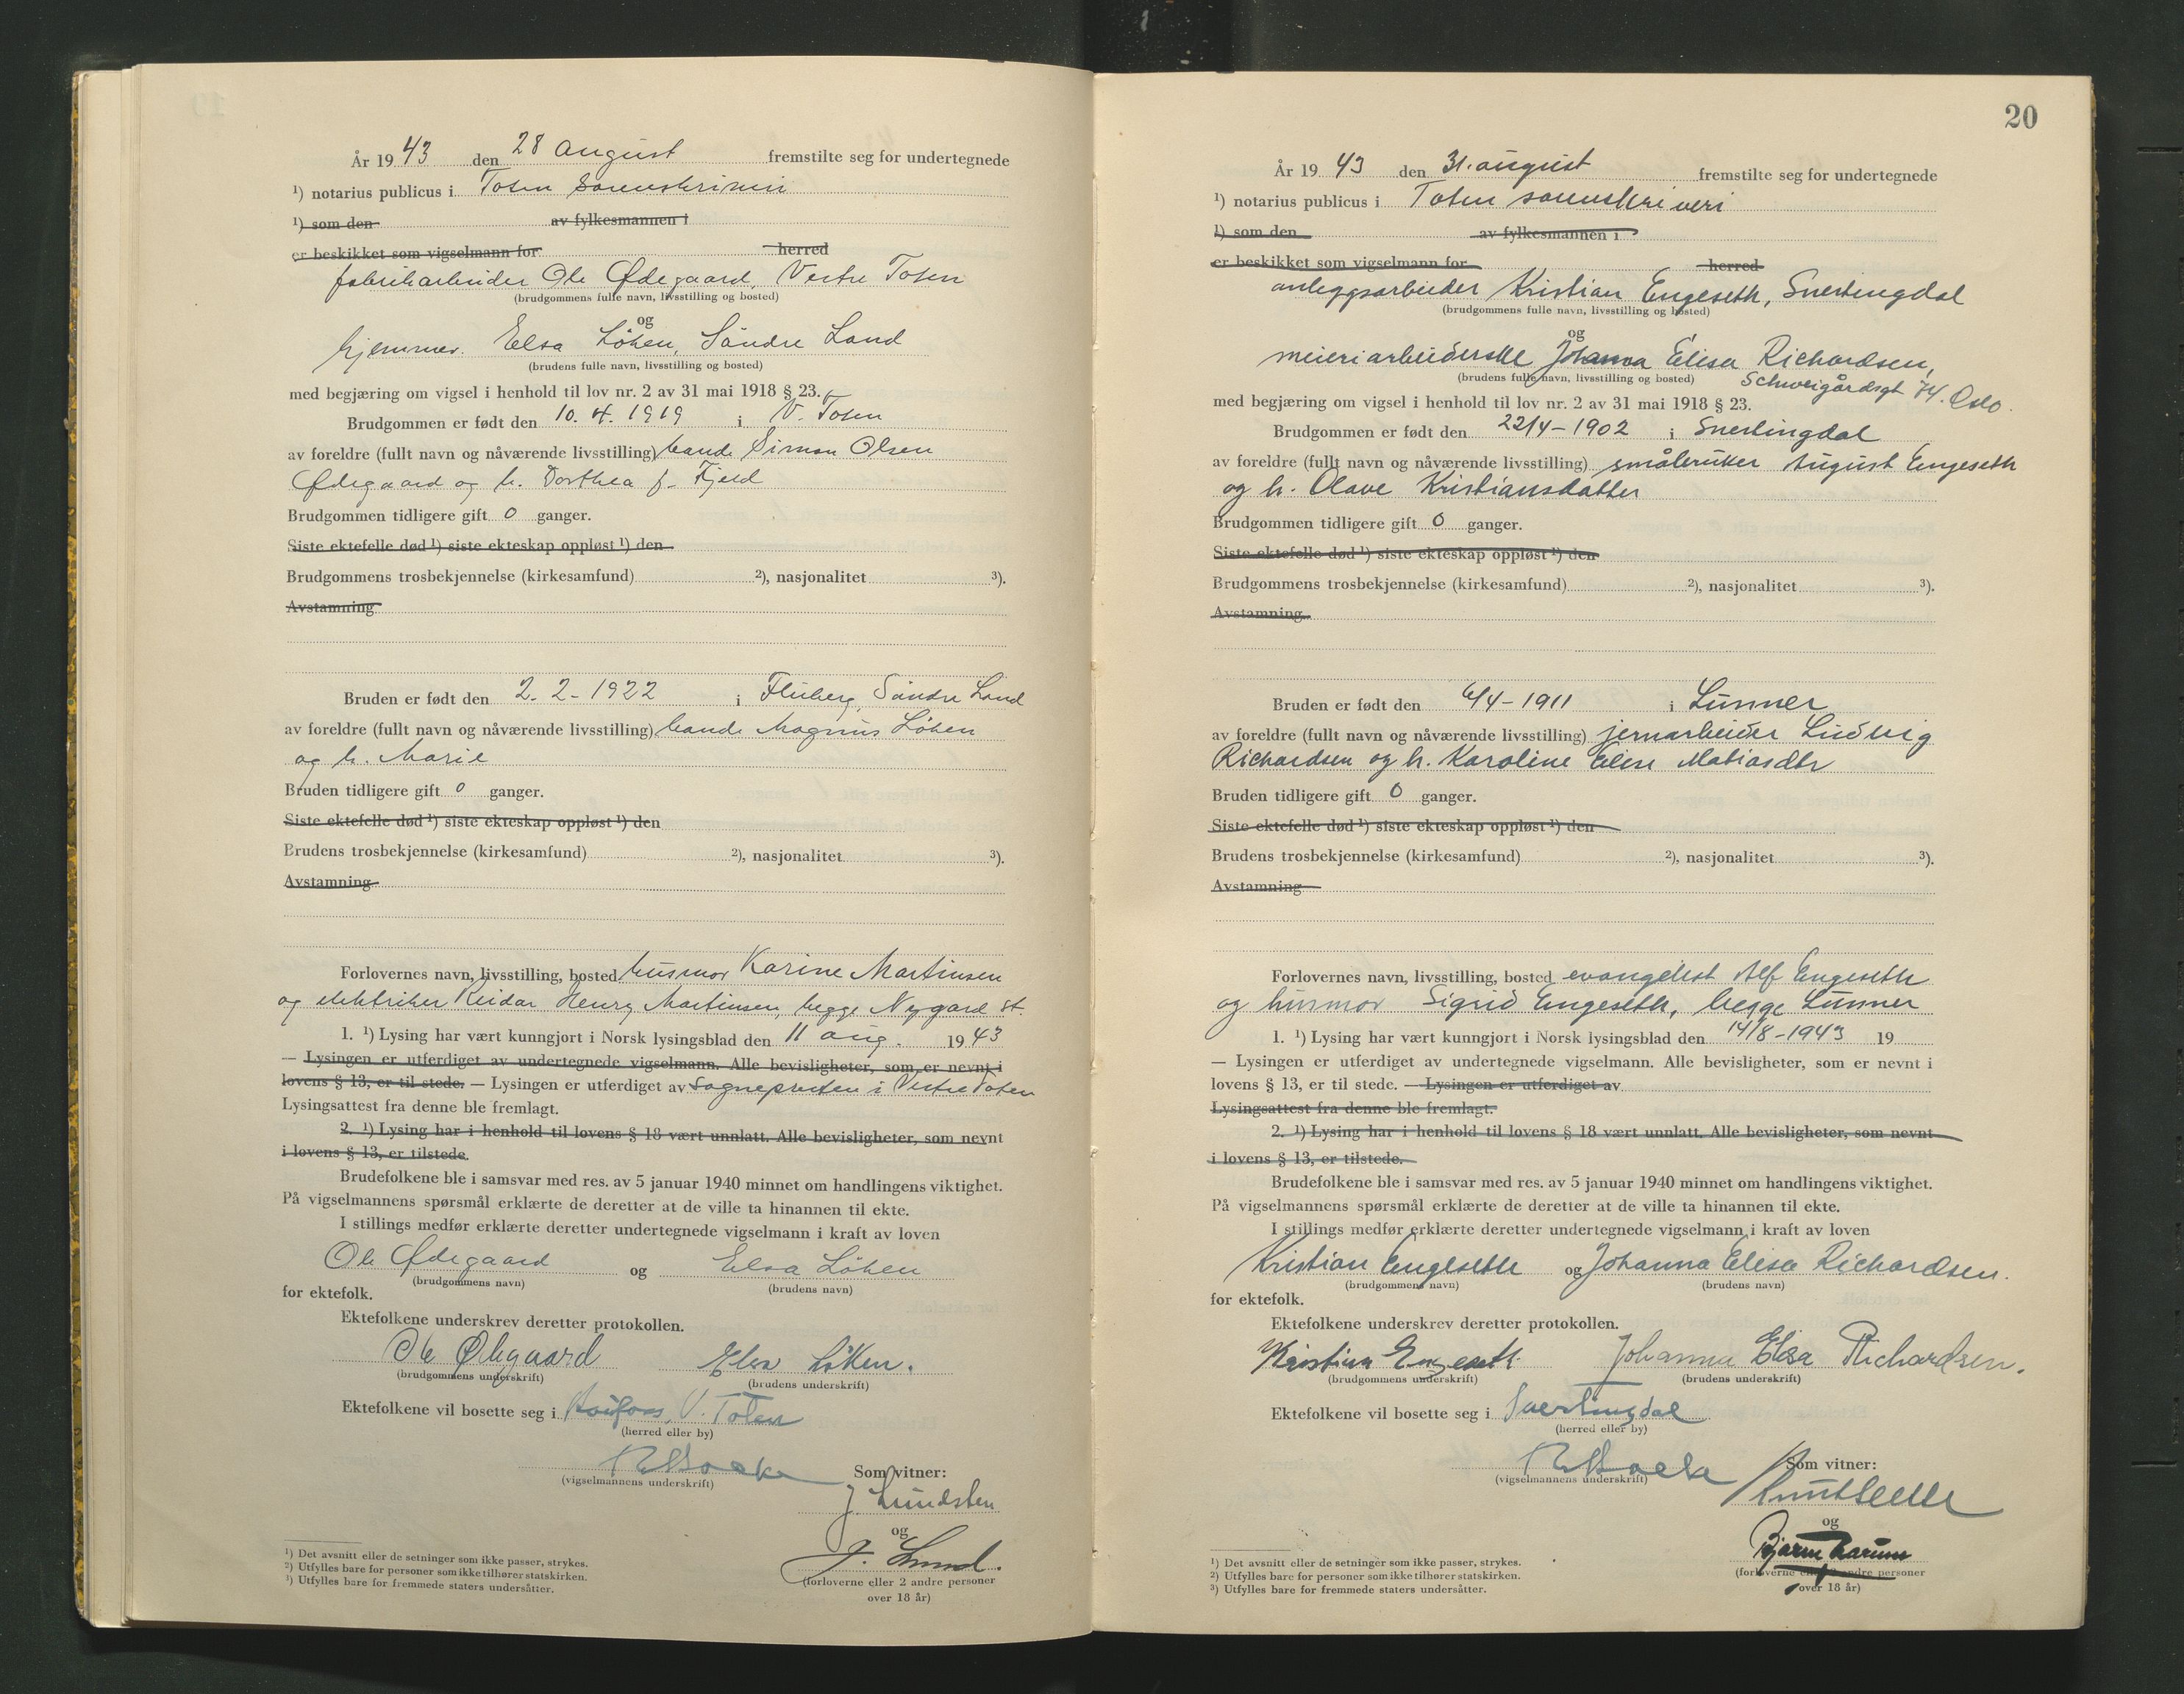 År 1943 den 28 august fremstilte seg for undertegnede
¹) notarius publicus i Toten sorenskriveri
¹) som den av fylkesmannen i
er beskikket som vigselmann for herred
fabrikarbeider Ole Ødegaard, Vestre Toten
(brudgommens fulle navn, livsstilling og bosted)
og
hjemmev. Elsa Löken, Söndre Land
(brudens fulle navn, livsstilling og bosted)
med begjæring om vigsel i henhold til lov nr. 2 av 31 mai 1918 § 23.
Brudgommen er født den 10. 4. 1919 i V. Toten
av foreldre (fullt navn og nåværende livsstilling) bonde Simon Olsen
Ødegaard og h. Dorthea f. Fjeld
Brudgommen tidligere gift 0 ganger.
Siste ektefelle død ¹) siste ekteskap oppløst ¹) den
Brudgommens trosbekjennelse (kirkesamfund) ²), nasjonalitet ³).
Avstamning
Bruden er født den 2. 2 - 1922 i Fluberg, Söndre Land
av foreldre (fullt navn og nåværende livsstilling) bonde Magnus Löken
og h. Marie
Bruden tidligere gift 0 ganger.
Siste ektefelle død ¹) siste ekteskap oppløst ¹) den
Brudens trosbekjennelse (kirkesamfund) ²), nasjonalitet ³).
Avstamning
Forlovernes navn, livsstilling, bosted husmor Karine Martinsen
og elektriker Reidar Henry Martinsen, begge Nygard st.
1. ¹) Lysing har vært kunngjort i Norsk lysingsblad den 11 aug. 1943
— Lysingen er utferdiget av undertegnede vigselmann. Alle bevisligheter, som er nevnt i
lovens § 13, er til stede. — Lysingen er utferdiget av Sognepresten i Vestre Toten
Lysingsattest fra denne ble fremlagt.
2. ¹) Lysing har i henhold til lovens § 18 vært unnlatt. Alle bevisligheter, som nevnt
i lovens § 13, er tilstede.
Brudefolkene ble i samsvar med res. av 5 januar 1940 minnet om handlingens viktighet.
På vigselmannens spørsmål erklærte de deretter at de ville ta hinannen til ekte.
I stillings medfør erklærte deretter undertegnede vigselmann i kraft av loven
Ole Ødegaard og Elsa Löken
(brudgommens navn) (brudens navn)
for ektefolk.
Ektefolkene underskrev deretter protokollen.
Ole Ødegaard Elsa Löken.
(brudgommens underskrift) (brudens underskrift)
Ektefolkene vil bosette seg i Raufoss, V. Toten
(herred eller by)
(vigselmannens underskrift) Som vitner:
J. Lundsten
og
J. Lund.
(forloverne eller 2 andre personer
over 18 år)
¹) Det avsnitt eller de setninger som ikke passer, strykes.
²) Utfylles bare for personer som ikke tilhører statskirken.
³) Utfylles bare for fremmede staters undersåtter.
20
År 1943 den 31. august fremstilte seg for undertegnede
¹) notarius publicus i Toten sorenskriveri
¹) som den av fylkesmannen i
er beskikket som vigselmann for herred
anleggsarbeider Kristian Engeseth, Snertingdal
(brudgommens fulle navn, livsstilling og bosted)
og
meieriarbeiderske Johanna Elisa Richardsen,
(brudens fulle navn, livsstilling og bosted) Schweigårdsgt 74. Oslo.
med begjæring om vigsel i henhold til lov nr. 2 av 31 mai 1918 § 23.
Brudgommen er født den 22/4 - 1902 i Snertingdal
av foreldre (fullt navn og nåværende livsstilling) småbruker August Engeseth
og h. Olave Kristiansdatter
Brudgommen tidligere gift 0 ganger.
Siste ektefelle død ¹) siste ekteskap oppløst ¹) den
Brudgommens trosbekjennelse (kirkesamfund) ²), nasjonalitet ³).
Avstamning
Bruden er født den 6/4 - 1911 i Lunner
av foreldre (fullt navn og nåværende livsstilling) jernarbeider Ludvig
Richardsen og h. Karoline Elise Matiasdtr
Bruden tidligere gift 0 ganger.
Siste ektefelle død ¹) siste ekteskap oppløst ¹) den
Brudens trosbekjennelse (kirkesamfund) ²), nasjonalitet ³).
Avstamning
Forlovernes navn, livsstilling, bosted evangelist Alf Engeseth
og husmor Sigrid Engeseth, begge Lunner
1. ¹) Lysing har vært kunngjort i Norsk lysingsblad den 14/8 - 1943 19
— Lysingen er utferdiget av undertegnede vigselmann. Alle bevisligheter, som er nevnt i
lovens § 13, er til stede. — Lysingen er utferdiget av
Lysingsattest fra denne ble fremlagt.
2. ¹) Lysing har i henhold til lovens § 18 vært unnlatt. Alle bevisligheter, som nevnt
i lovens § 13, er tilstede.
Brudefolkene ble i samsvar med res. av 5 januar 1940 minnet om handlingens viktighet.
På vigselmannens spørsmål erklærte de deretter at de ville ta hinannen til ekte.
I stillings medfør erklærte deretter undertegnede vigselmann i kraft av loven
Kristian Engeseth og Johanna Elisa Richardsen.
(brudgommens navn) (brudens navn)
for ektefolk.
Ektefolkene underskrev deretter protokollen.
Kristian Engeseth Johanna Elisa Richardsen.
(brudgommens underskrift) (brudens underskrift)
Ektefolkene vil bosette seg i Snertingdal
(herred eller by)
(vigselmannens underskrift) Som vitner:
og
Bjarne
(forloverne eller 2 andre personer
over 18 år)
¹) Det avsnitt eller de setninger som ikke passer, strykes.
²) Utfylles bare for personer som ikke tilhører statskirken.
³) Utfylles bare for fremmede staters undersåtter.